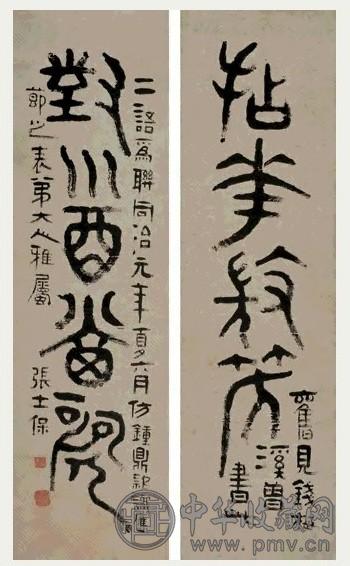 拈華微笑
舊見錢梅
溪曾
書此
對酒當歌
二語爲聯同治元年夏六月仿鍾鼎款識應
節之表弟大人雅屬
張士保
中华收藏网
www.pmv.cn